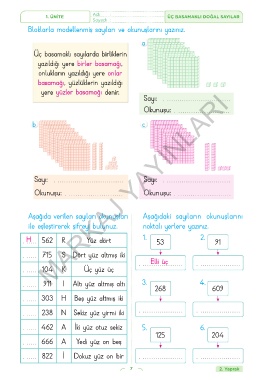 1. ÜNİTE
Adı:
Soyadı:
ÜÇ BASAMAKLI DOĞAL SAYILAR
Bloklarla modellenmiş sayıları ve okunuşlarını yazınız.
Üç basamaklı sayılarda birliklerin
yazıldığı yere birler basamağı,
onlukların yazıldığı yere onlar
basamağı, yüzlüklerin yazıldığı
yere yüzler basamağı denir.
a.
Sayı:
Okunuşu:
b.
Sayı:
Okunuşu:
c.
Sayı:
Okunuşu:
MARKAJ YAYINLARI
Aşağıda verilen sayıları okunuşları
ile eşleştirerek şifreyi bulunuz.
H 562 R Yüz dört
715 S Dört yüz altmış iki
104 K Üç yüz üç
311 I Altı yüz altmış altı
303 H Beş yüz altmış iki
238 N Sekiz yüz yirmi iki
462 A İki yüz otuz sekiz
666 A Yedi yüz on beş
822 İ Dokuz yüz on bir
Aşağıdaki sayıların okunuşlarını
noktalı yerlere yazınız.
1. 53
Elli üç
2. 91
3. 268
4. 609
5. 125
6. 204
7
2. Yaprak